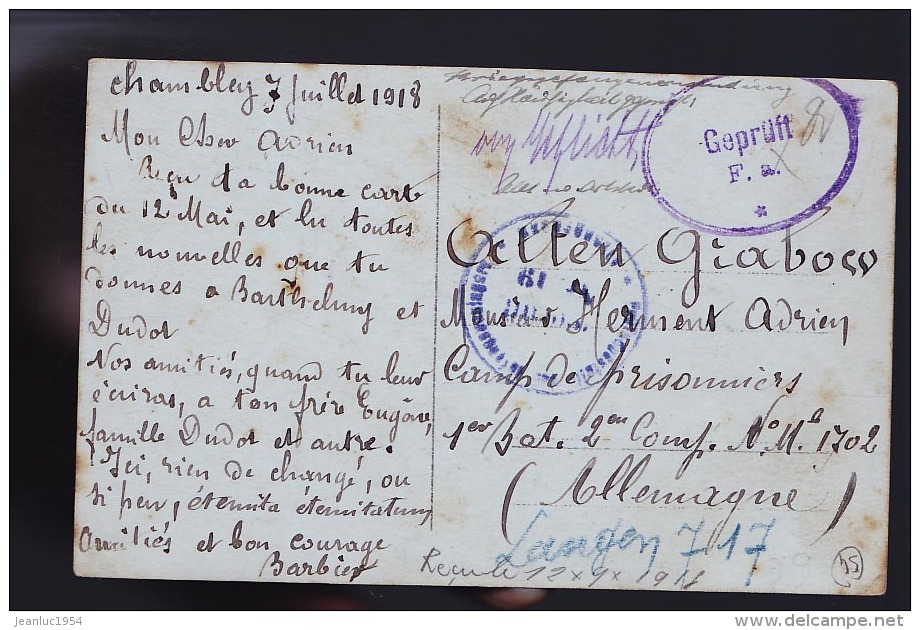 Chambley 7 Juillet 1918
Mon Cher Adrien
Reçu ta bonne carte
du 12 Mai, et lu toutes
les nouvelles que tu
donnes a Barthelemy et
Dudot
Nos amitiés, quand tu leur
écriras, a ton frère Eugène,
famille Dudot et autre.
Ici, rien de changé, ou
si peu, éternita éternitatum
Amitiés et bon courage
Barbier
Geprüft
F. a.
Alten Grabow
Monsieur Herment Adrien
Camp de prisonniers
1er Bat. 2en Comp. No Ml 1702
(Allemagne)
Langen 717
Reçu le 12 x 9 x 1918
jeanluc1954
delcampe.net